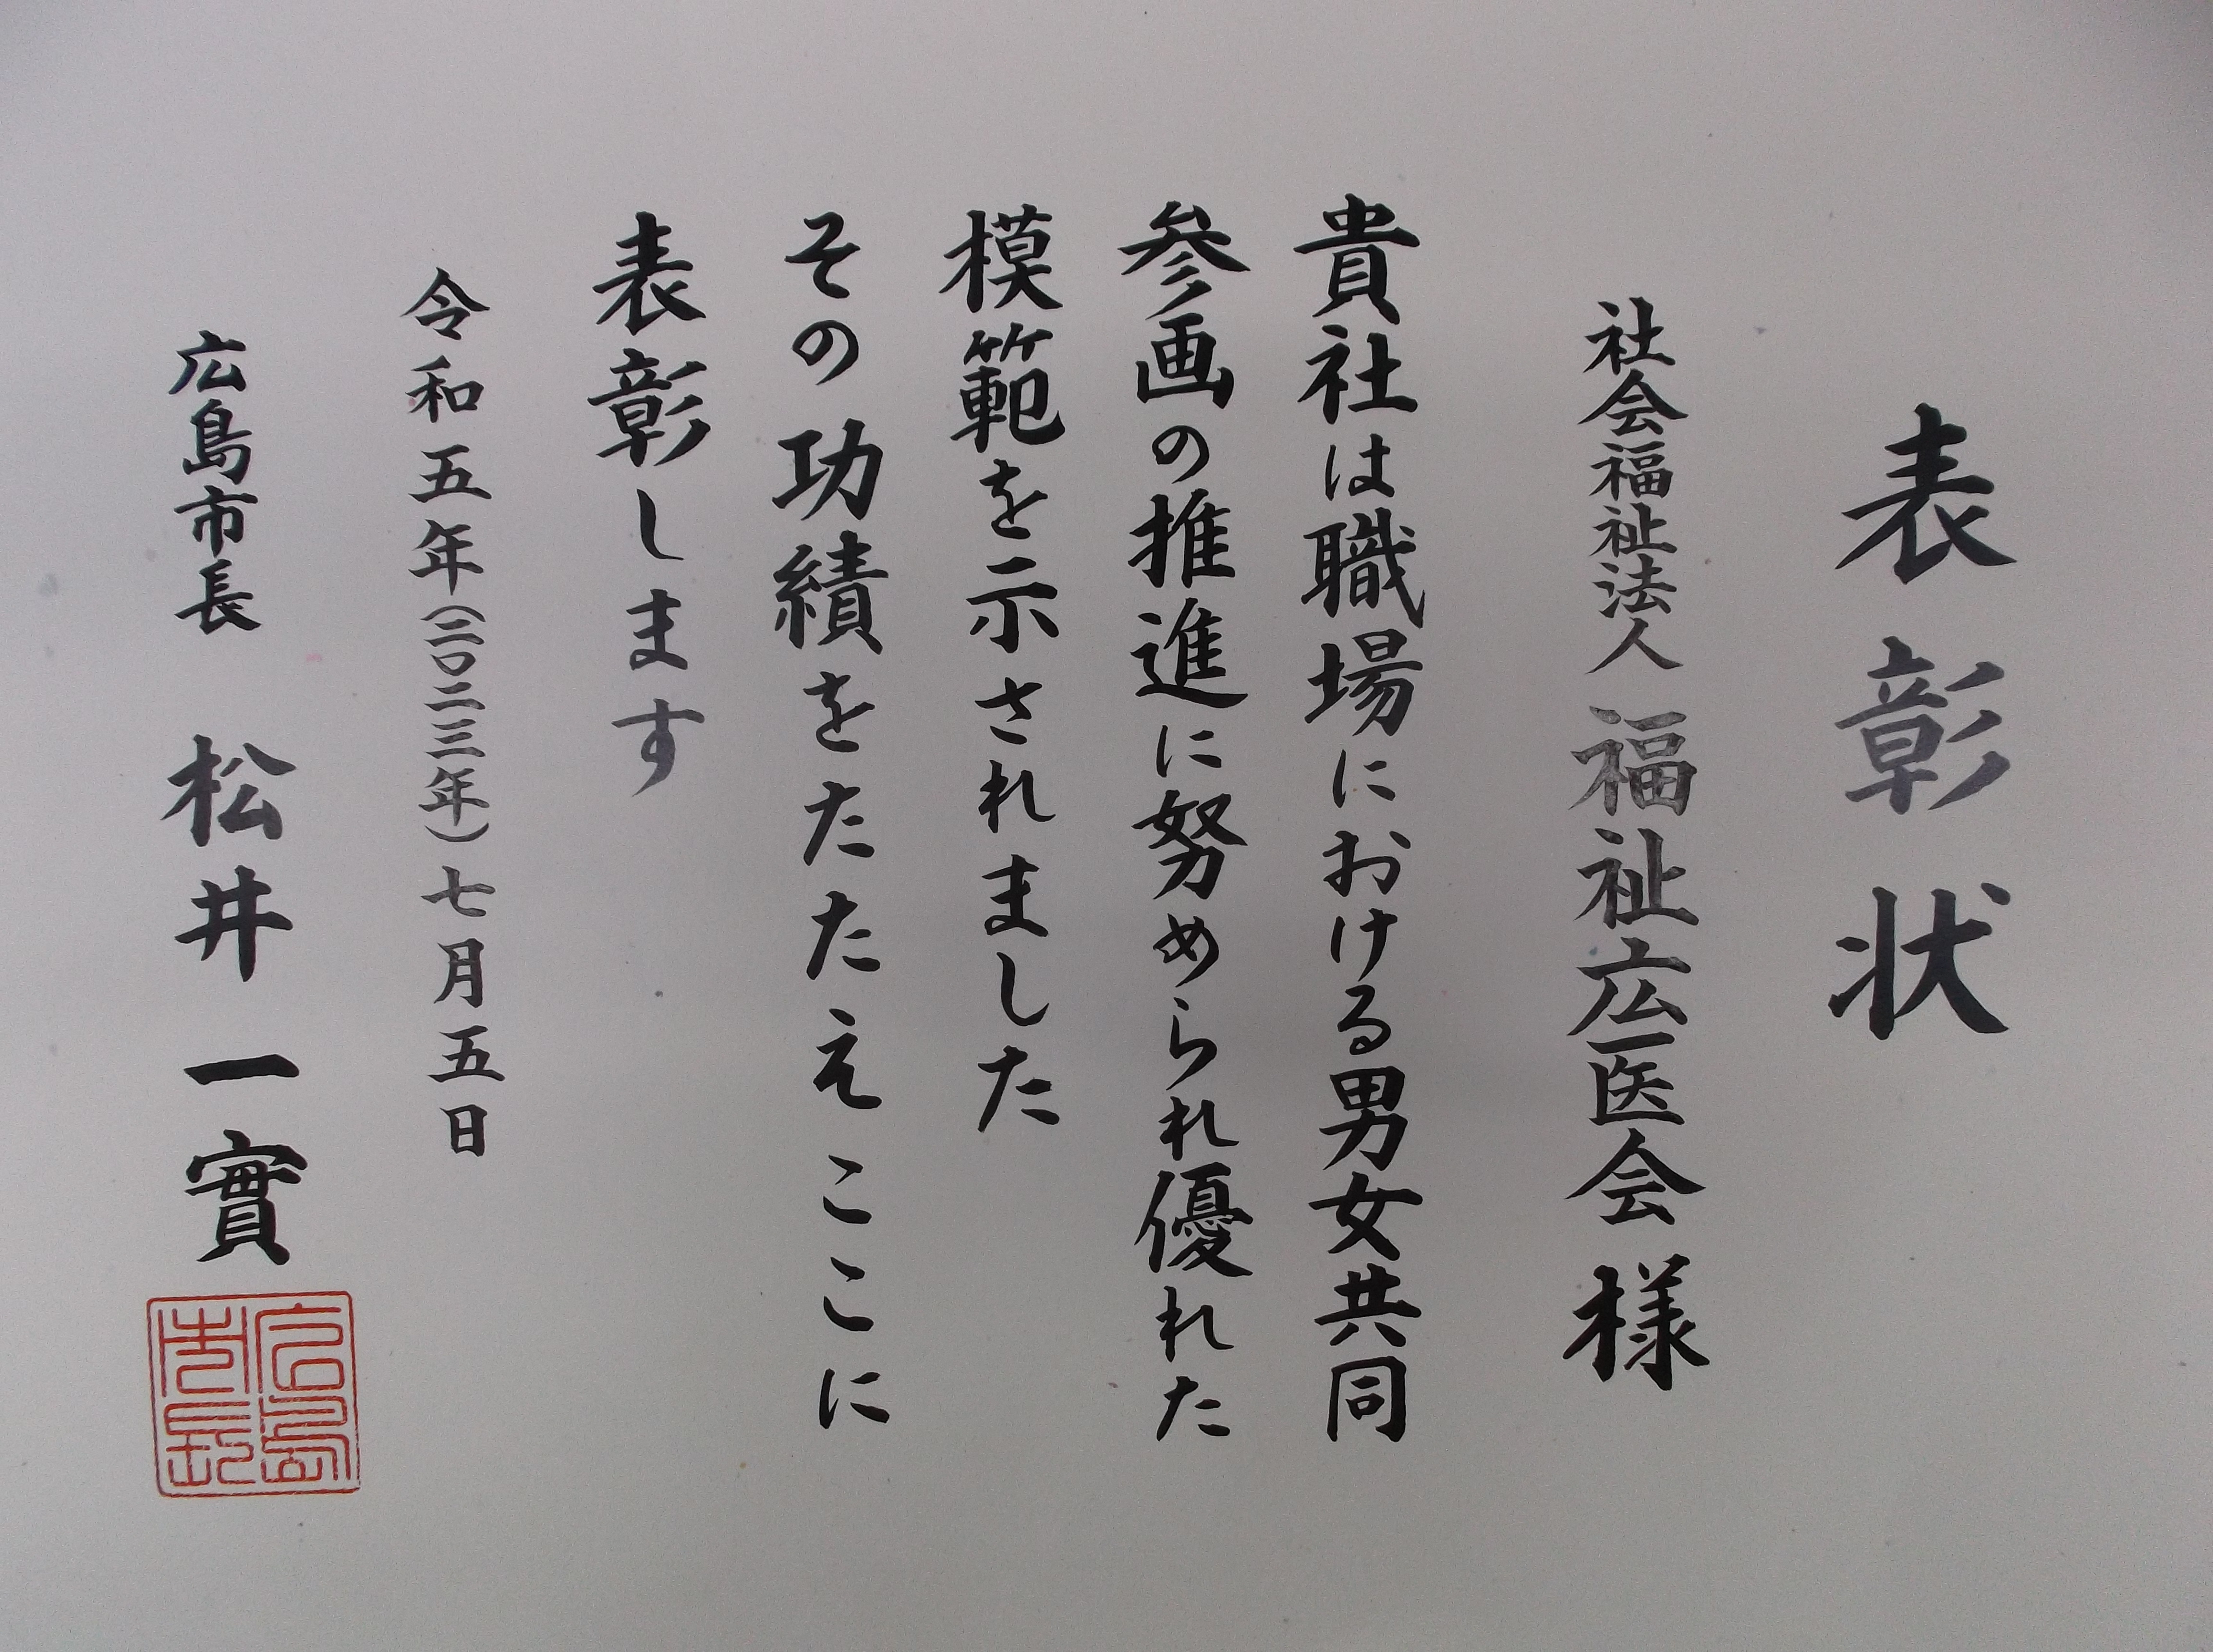 表彰状
社会福祉法人 福祉広医会 様
貴社は職場における男女共同
参画の推進に努められ優れた
模範を示されました
その功績をたたえここに
表彰します
令和五年(二〇二三年)七月五日
広島市長 松井一實
広島市長